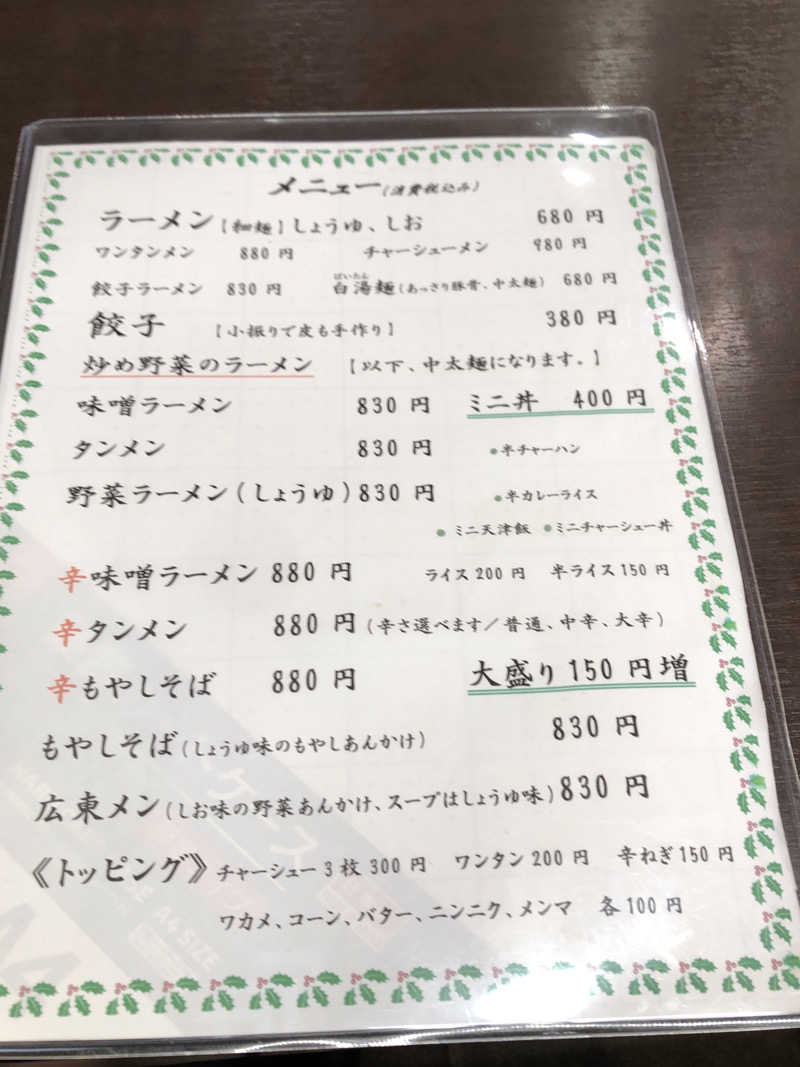 メニュー(消費税込み)
ラーメン【細麺】しょうゆ、しお 680 円
ワンタンメン 880 円 チャーシューメン 980 円
餃子ラーメン 830 円 白湯麺(あっさり豚骨、中太麺) 680 円
ぱいたん
餃子 【小振りで皮も手作り】 380 円
炒め野菜のラーメン 【以下、中太麺になります。】
味噌ラーメン 830 円 ミニ丼 400 円
タンメン 830 円 ●半チャーハン
野菜ラーメン(しょうゆ)830 円 ●半カレーライス
●ミニ天津飯 ●ミニチャーシュー丼
辛味噌ラーメン 880 円 ライス 200 円 半ライス 150 円
辛タンメン 880 円(辛さ選べます/普通、中辛、大辛)
辛もやしそば 880 円 大盛り 150 円増
もやしそば(しょうゆ味のもやしあんかけ) 830 円
広東メン(しお味の野菜あんかけ、スープはしょうゆ味)830 円
《トッピング》チャーシュー3枚 300 円 ワンタン 200 円 辛ねぎ 150 円
ワカメ、コーン、バター、ニンニク、メンマ 各 100 円
ケース
A4 SIZE
A4